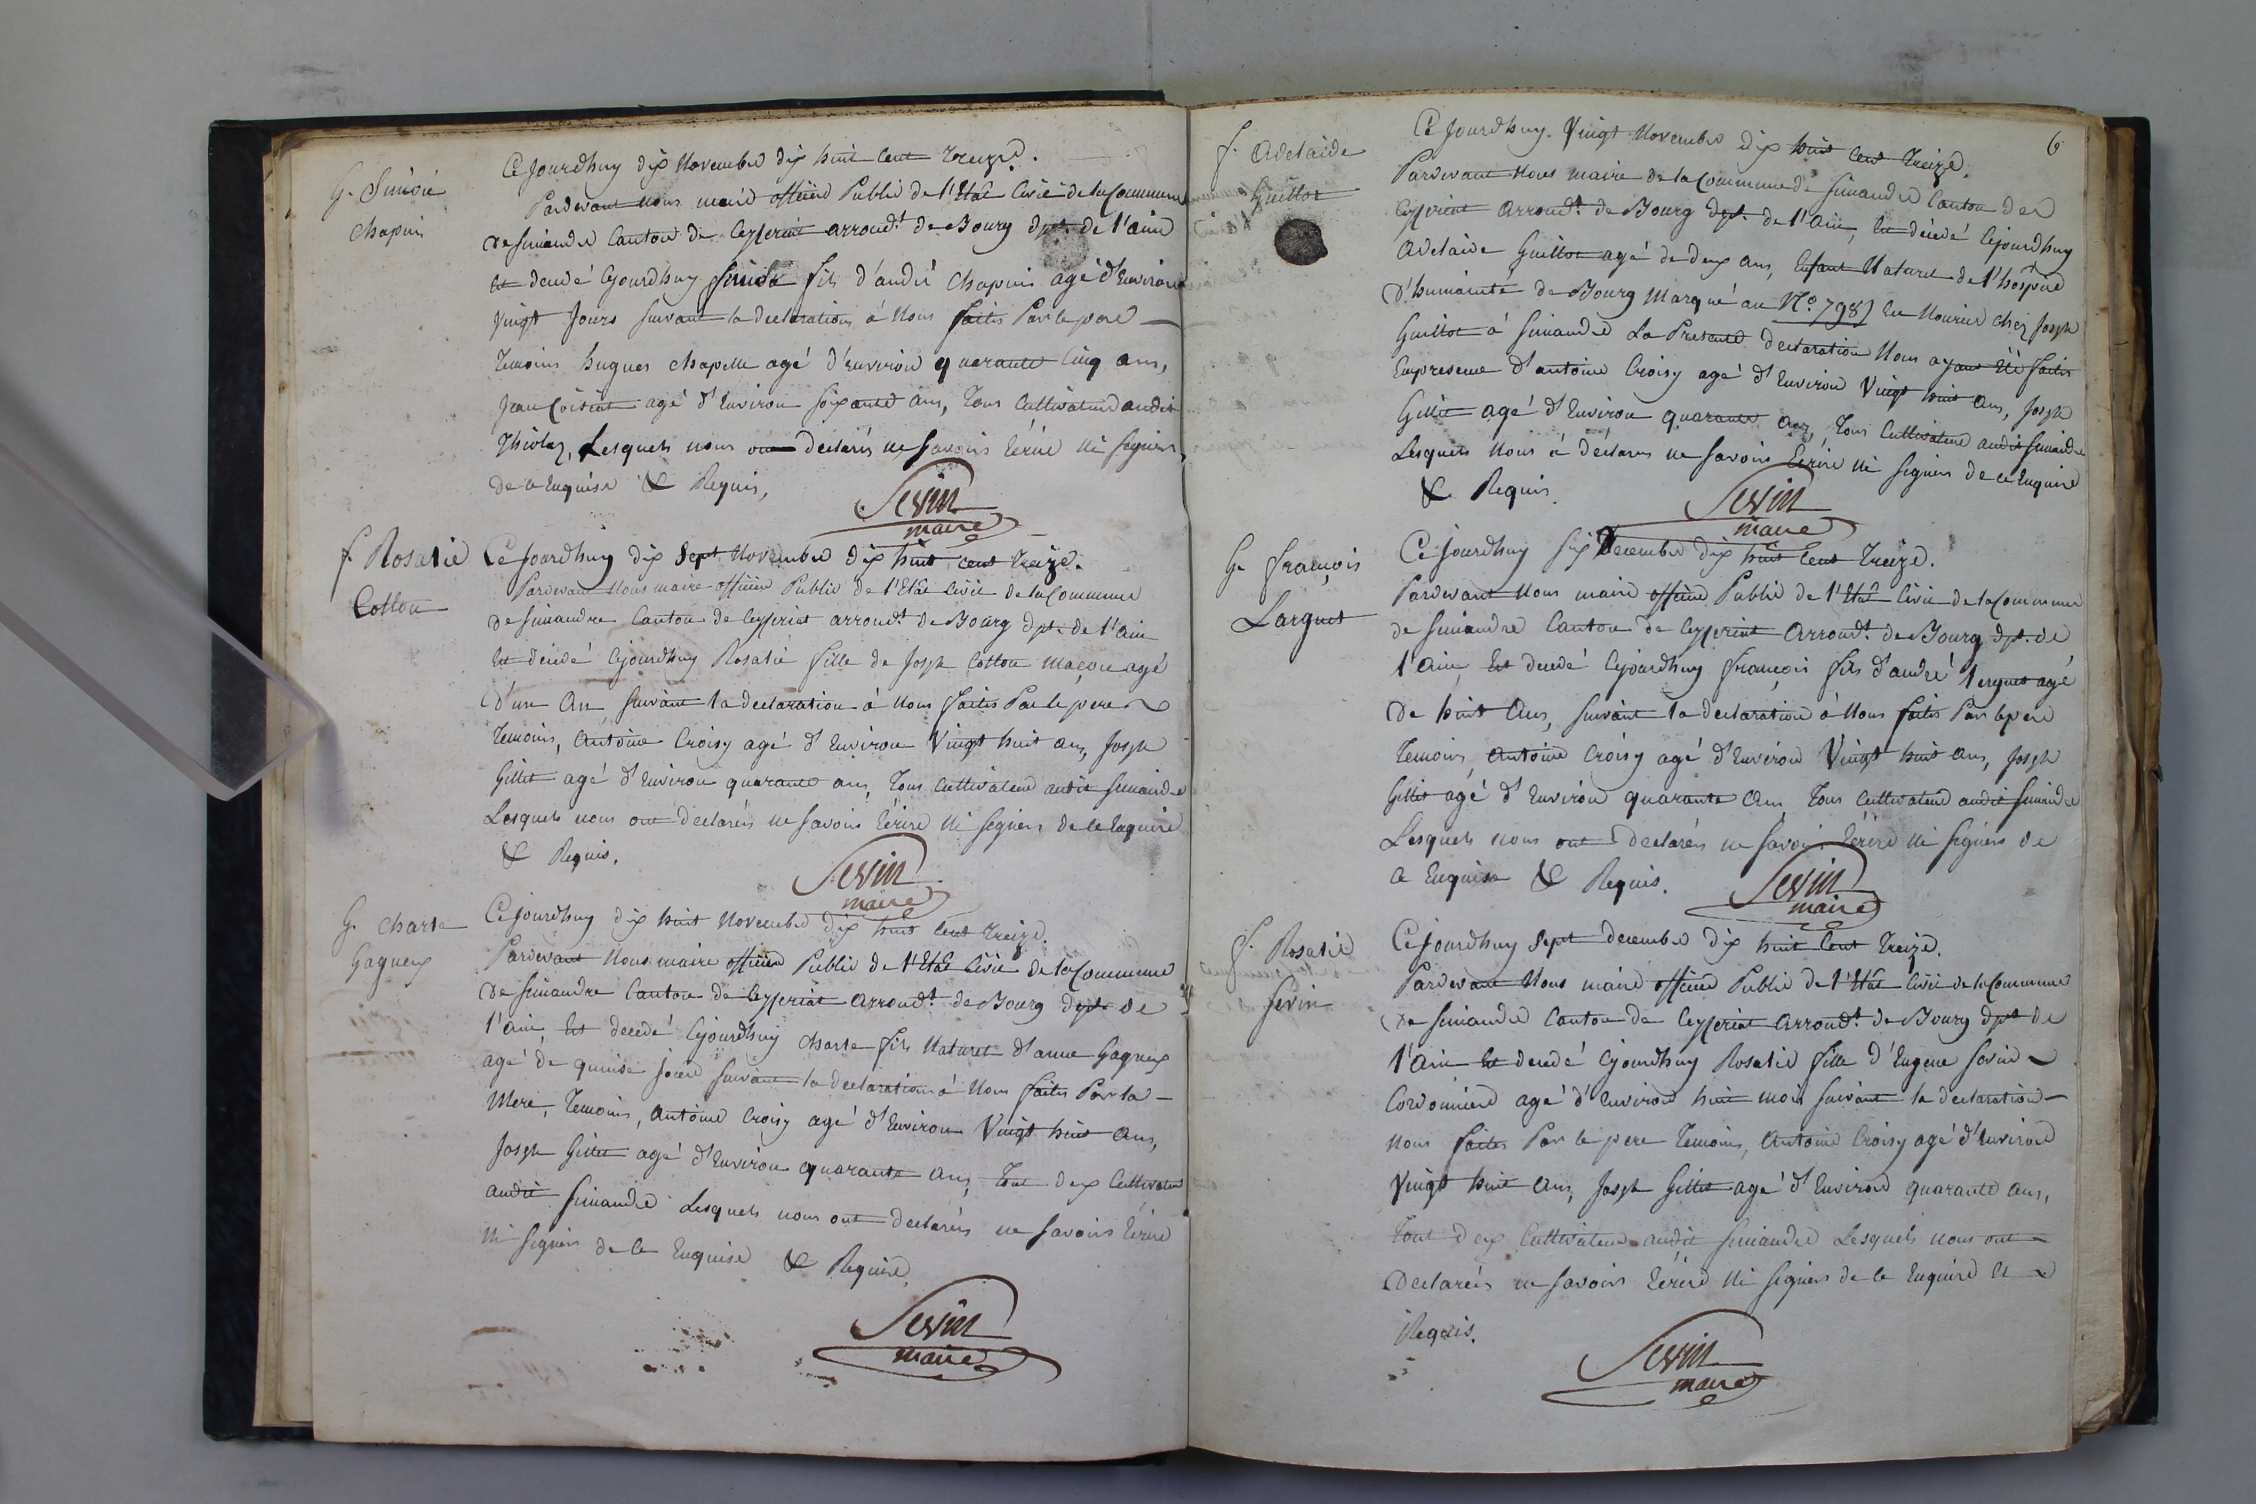 G. Simoïe
Chapuis
Ce jourdhuy dix Novembre dix huit cent treize.
Pardevant nous maire officier Public de l'Etat Civil de la Commune
de Simandre Canton de Ceyzeriat arroudt de Bourg dpt. de l'ain
Est decedé cejourdhuy fils d'andré Chapuis agé d'Environ
vingt Jours suivant la declaration à Nous faites Par le pere
Temoins hugues Chapelle agé d'Environ quarante Cinq ans,
Jean agé d'Environ soixante ans, Tous Cultivateurs audit
Thiolez, Lesquels nous ont declarés ne Savoirs Ecrire ni signers
de ce Enquise & Requis,
Sevin
maire
f Rosalie
Cottou
Ce Jourdhuy dix Sept Novembre dix huit cent treize.
Pardevant Nous maire officier Public de l'Etat Civil de la Commune
de Simandre Canton de Ceyzeriat arroudt de Bourg dpt. de l'ain
Est decedé Cejourdhuy Rosalie fille de Josph Cottou Maçon agé
d'un an Suivant la declaration à Nous faites Par le pere
Temoins, Antoine Croisy agé d'Environ Vingt huit ans, Josph
Gillet agé d'Environ quarante ans, Tous Cultivateurs audit Simandre
Lesquels nous ont declarés ne Savoirs Ecrire Ni signers de ce Enquire
& Requis.
Sevin
maire
G. Charle
Gagneux
Ce jourdhuy dix huit Novembre dix huit Cent treize.
Pardevant Nous maire officier Public de l'Etat Civil de la Commune
de Simandre Canton de Ceyzeriat arroudt de Bourg dpt. de
l'ain, Est decedé Cejourdhuy Charle fils Naturel d'anne Gagneux
agé de quinse jours suivant la declaration à Nous faites Par la
Mere, Temoins, Antoine Croisy agé d'Environ Vingt huit ans,
Josph Gillet agé d'Environ quarante ans, Tout deux Cultivateurs
audit Simandre Lesquels nous ont declarés ne Savoirs Ecrire
Ni signers de ce Enquise & Requise,
Sevin
maire
6
f. Adelaide
Guillot
Ce Jourdhuy. Vingt Novembre dix huit Cent Treize.
Pardevant Nous maire de la Commune de Simandre Canton de
Ceyzeriat arroudt. de Bourg dpt. de l'Ain, Est decedé Cejourdhuy
Adelaide Guillot agé de deux ans, Enfant Naturel de l'hospice
d'humainté de Bourg Marqué au No. 798) En Nourice chez Josph
Guillot à Simandre La Presente Declaration Nous ayant Eté faites
Empresence d'antoine Croisy agé d'Environ Vingt huit ans, Josph
Gillet agé d'Environ quarante ans, Tous Cultivateurs audit Simandre
Lesquels Nous à déclares ne Savoirs Ecrire Ni signers de ce Enquire
& Requis.
Sevin
maire
G. François
Larguet
Ce jourdhuy six Decembre dix huit Cent Treize.
Pardevant Nous maire officier Public de l'Etat Civil de la Commune
de Simandre Canton de Ceyzeriat Arroudt. de Bourg dpt. de
l'ain, Est decedé Cejourdhuy François fils d'andré Lerguet agé
de huit ans, Suivant la declaration à Nous faites Par le pere
Temoins, Antoine Croisy agé d'Environ Vingt huit ans, Josph
Gillet agé d'Environ quarante ans Tous Cultivateurs audit Simandre
Lesquels nous ont declarés ne Savoir Ecrire Ni signers de
ce Enquise & Requis.
Sevin
maire
f. Rosalie
Sevin
Ce Jourdhuy Sept decembre dix huit Cent Treize.
Pardevant Nous maire officier Public de l'Etat Civil de la Commune
de Simandre Canton de Ceyzeriat Arroudt. de Bourg dpt. de
l'Ain Est decedé Cejourdhuy Rosalie fille d'Eugene Sevin
Cordonniere agé d'Environ huit mois suivant la declaration
nous faites Par le pere Temoins, Antoine Croisy agé d'Environ
Vingt huit ans, Josph Gillet agé d'Environ quarante ans,
Tout deux Cultivateurs audit Simandre Lesquels nous ont
Declarés ne Savoirs Ecrire Ni signers de ce Enquire Et
Requis.
Sevin
maire